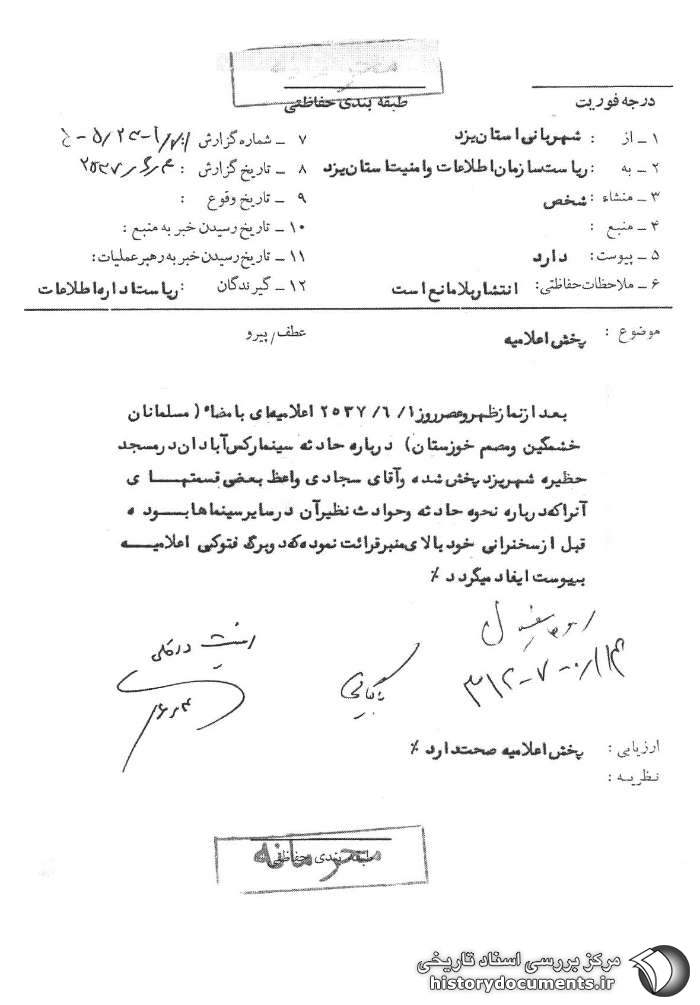 محرمانه
درجه فوریت
طبقه بندی حفاظتی
۱ ـ از : شهربانی استان یزد
۲ ـ به : ریاست سازمان اطلاعات و امنیت استان یزد
۳ ـ منشاء : شخص
۴ ـ منبع :
۵ ـ پیوست : دارد
۶ ـ ملاحظات حفاظتی : انتشار بلامانع است
۷ ـ شماره گزارش
۸ ـ تاریخ گزارش : ۲۵۳۷
۹ ـ تاریخ وقوع :
۱۰ ـ تاریخ رسیدن خبر به منبع :
۱۱ ـ تاریخ رسیدن خبر به رهبر عملیات :
۱۲ ـ گیرندگان : ریاست اداره اطلاعات
موضوع : پخش اعلامیه
عطف/پیرو
بعد از نماز ظهر و عصر روز ۱/ ۶/ ۲۵۳۷ اعلامیه‌ای با مضاء ( مسلمانان
خشمگین و مصمم خوزستان) درباره حادثه سینما رکس آبادان در مسجد
حظیره شهر یزد پخش شده و آقای سجادی واعظ بعضی قسمتهای
آنرا که درباره نحوه حادثه و حوادث نظیر آن در سایر سینماها بوده
قبل از سخنرانی خود بالای منبر قرائت نموده که دو برگ فتوکپی اعلامیه
بپیوست ایفاد میگردد ٪
۳۱۲-۷-
ارزیابی : پخش اعلامیه صحت دارد ٪
نظریه :
طبقه بندی حفاظتی
محرمانه
مرکز بررسی اسناد تاریخی
historydocuments.ir